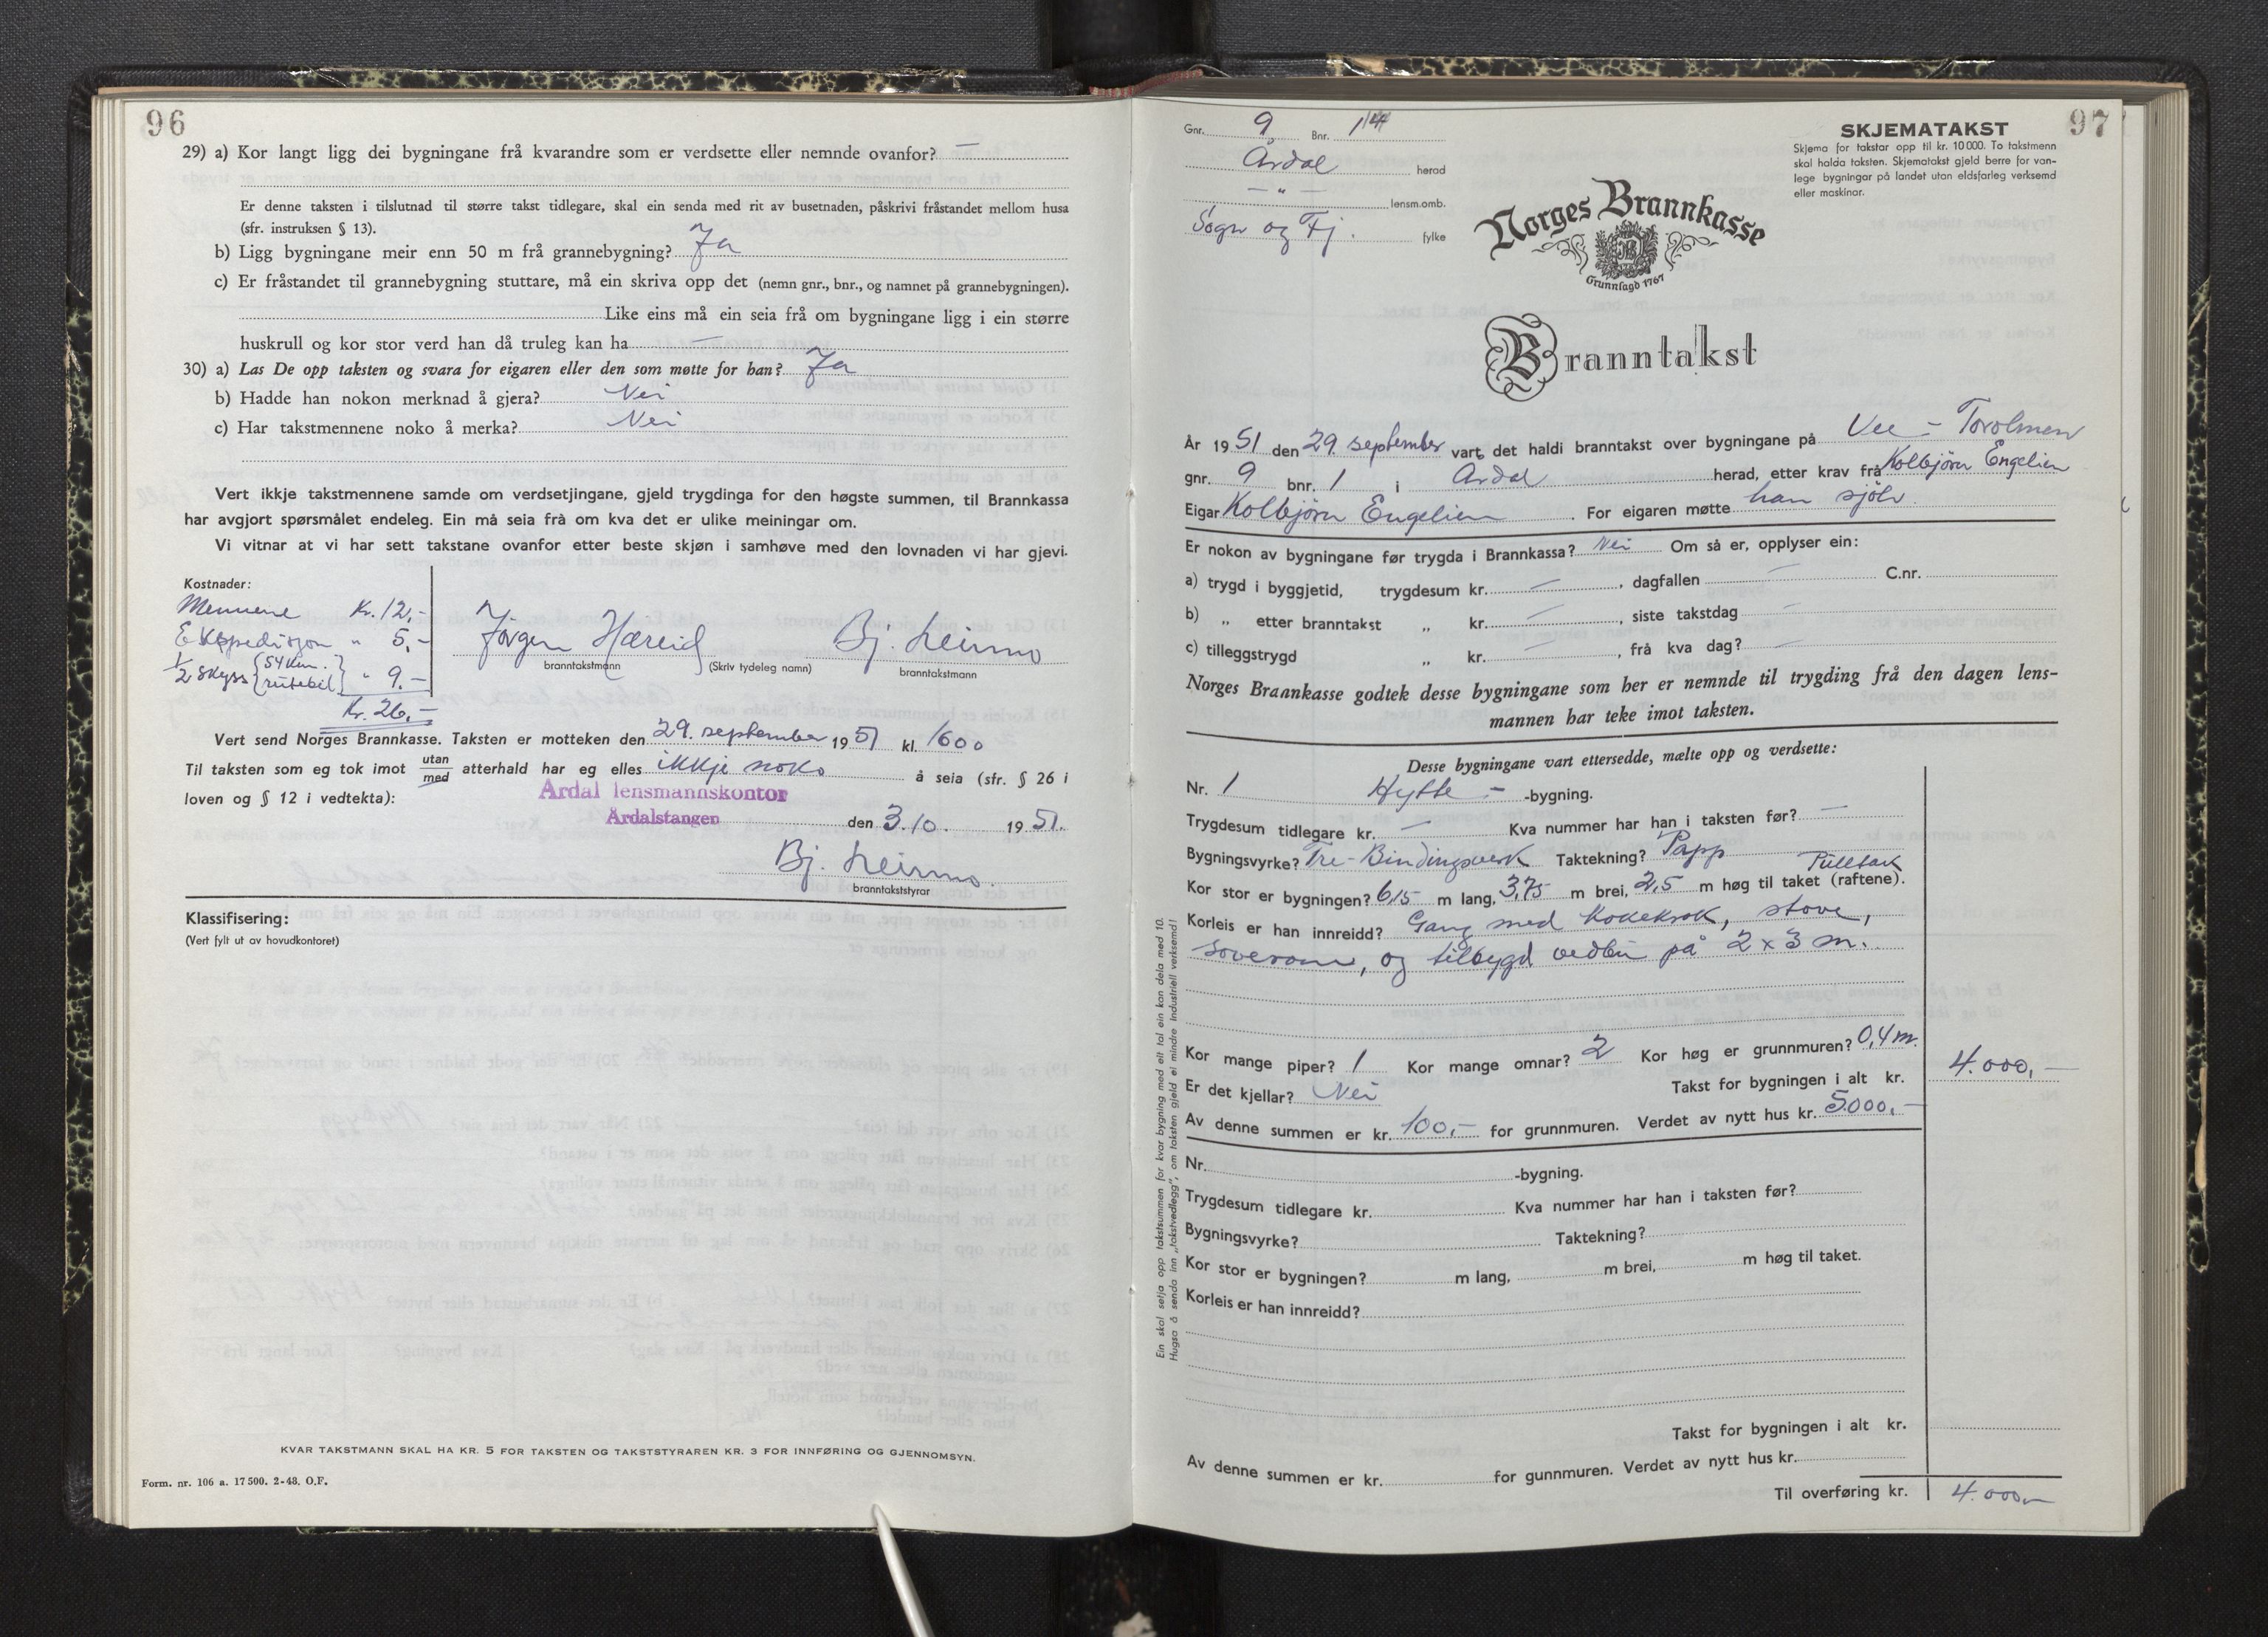 96
29) a) Kor langt ligg dei bygningane frå kvarandre som er verdsette eller nemnde ovanfor? —
Er denne taksten i tilslutnad til større takst tidlegare, skal ein senda med rit av busetnaden, påskrivi fråstandet mellom husa
(sfr. instruksen § 13).
b) Ligg bygningane meir enn 50 m frå grannebygning? Ja
c) Er fråstandet til grannebygning stuttare, må ein skriva opp det (nemn gnr., bnr., og namnet på grannebygningen).
Like eins må ein seia frå om bygningane ligg i ein større
huskrull og kor stor verd han då truleg kan ha —
30) a) Las De opp taksten og svara for eigaren eller den som møtte for han? Ja
b) Hadde han nokon merknad å gjera? Nei
c) Har takstmennene noko å merka? Nei
Vert ikkje takstmennene samde om verdsetjingane, gjeld trygdinga for den høgste summen, til Brannkassa
har avgjort spørsmålet endeleg. Ein må seia frå om kva det er ulike meiningar om.
Vi vitnar at vi har sett takstane ovanfor etter beste skjøn i samhøve med den lovnaden vi har gjevi.
Kostnader:
Mennene Kr. 12,-
Ekspedisjon " 5,-
1/2 skyss {54 km. rutebil} " 9.-
Kr. 26,-
Jørgen Hæreid Bj. Leirmo
branntakstmann (Skriv tydeleg namn) branntakstmann
Vert send Norges Brannkasse. Taksten er motteken den 29. september 1951 kl. 1600
Til taksten som eg tok imot utan/med atterhald har eg elles ikkje noko å seia (sfr. § 26 i
loven og § 12 i vedtekta):
Årdal lensmannskontor
Årdalstangen den 3.10. 1951.
Bj. Leirmo.
branntakststyrar
Klassifisering:
(Vert fylt ut av hovudkontoret)
KVAR TAKSTMANN SKAL HA KR. 5 FOR TAKSTEN OG TAKSTSTYRAREN KR. 3 FOR INNFØRING OG GJENNOMSYN.
Form. nr. 106 a. 17 500. 2-48. O.F.
97
Gnr. 9 Bnr. 1
Årdal herad
— " — lensm.omb.
Sogn og Fj. fylke
SKJEMATAKST
Skjema for takstar opp til kr. 10 000. To takstmenn
skal halda taksten. Skjematakst gjeld berre for van-
lege bygningar på landet utan eldsfarleg verksemd
eller maskinar.
Norges Brannkasse
Grunnlagd 1767
Branntakst
År 1951 den 29. september vart det haldi branntakst over bygningane på Vee - Torolmen
gnr. 9 bnr. 1 i Årdal herad, etter krav frå Kolbjørn Engelien
Eigar Kolbjørn Engelien. For eigaren møtte han sjølv.
Er nokon av bygningane før trygda i Brannkassa? Nei Om så er, opplyser ein:
a) trygd i byggjetid, trygdesum kr. — , dagfallen — C.nr.
b) „ etter branntakst „ kr. — , siste takstdag —
c) tilleggstrygd „ kr. — , frå kva dag? —
Norges Brannkasse godtek desse bygningane som her er nemnde til trygding frå den dagen lens-
mannen har teke imot taksten.
Desse bygningane vart ettersedde, mælte opp og verdsette:
Nr. 1 Hytte - -bygning.
Trygdesum tidlegare kr. — Kva nummer har han i taksten før? —
Bygningsvyrke? Tre-Bindingsverk Taktekning? Papp
Pulttak
Kor stor er bygningen? 6,15 m lang, 3,75 m brei, 2,5 m høg til taket (raftene).
Korleis er han innreidd? Gang med kokekrok, stove,
soverom, og tilbygd vedbu på 2 x 3 m.
Kor mange piper? 1 Kor mange omnar? 2 Kor høg er grunnmuren? 0,4 m.
Er det kjellar? Nei Takst for bygningen i alt kr. 4.000,-
Av denne summen er kr. 100,- for grunnmuren. Verdet av nytt hus kr. 5000,-
Nr. -bygning.
Trygdesum tidlegare kr. Kva nummer har han i taksten før?
Bygningsvyrke? Taktekning?
Kor stor er bygningen? m lang, m brei, m høg til taket.
Korleis er han innreidd?
Takst for bygningen i alt kr.
Av denne summen er kr. for gunnmuren. Verdet av nytt hus kr.
Til overføring kr. 4.000,-
Ein skal setja opp takstsummen for kvar bygning med eit tal ein kan dela med 10.
Hugsa å senda inn „takstvedlegg", om taksten gjeld ei mindre industriell verksemd!